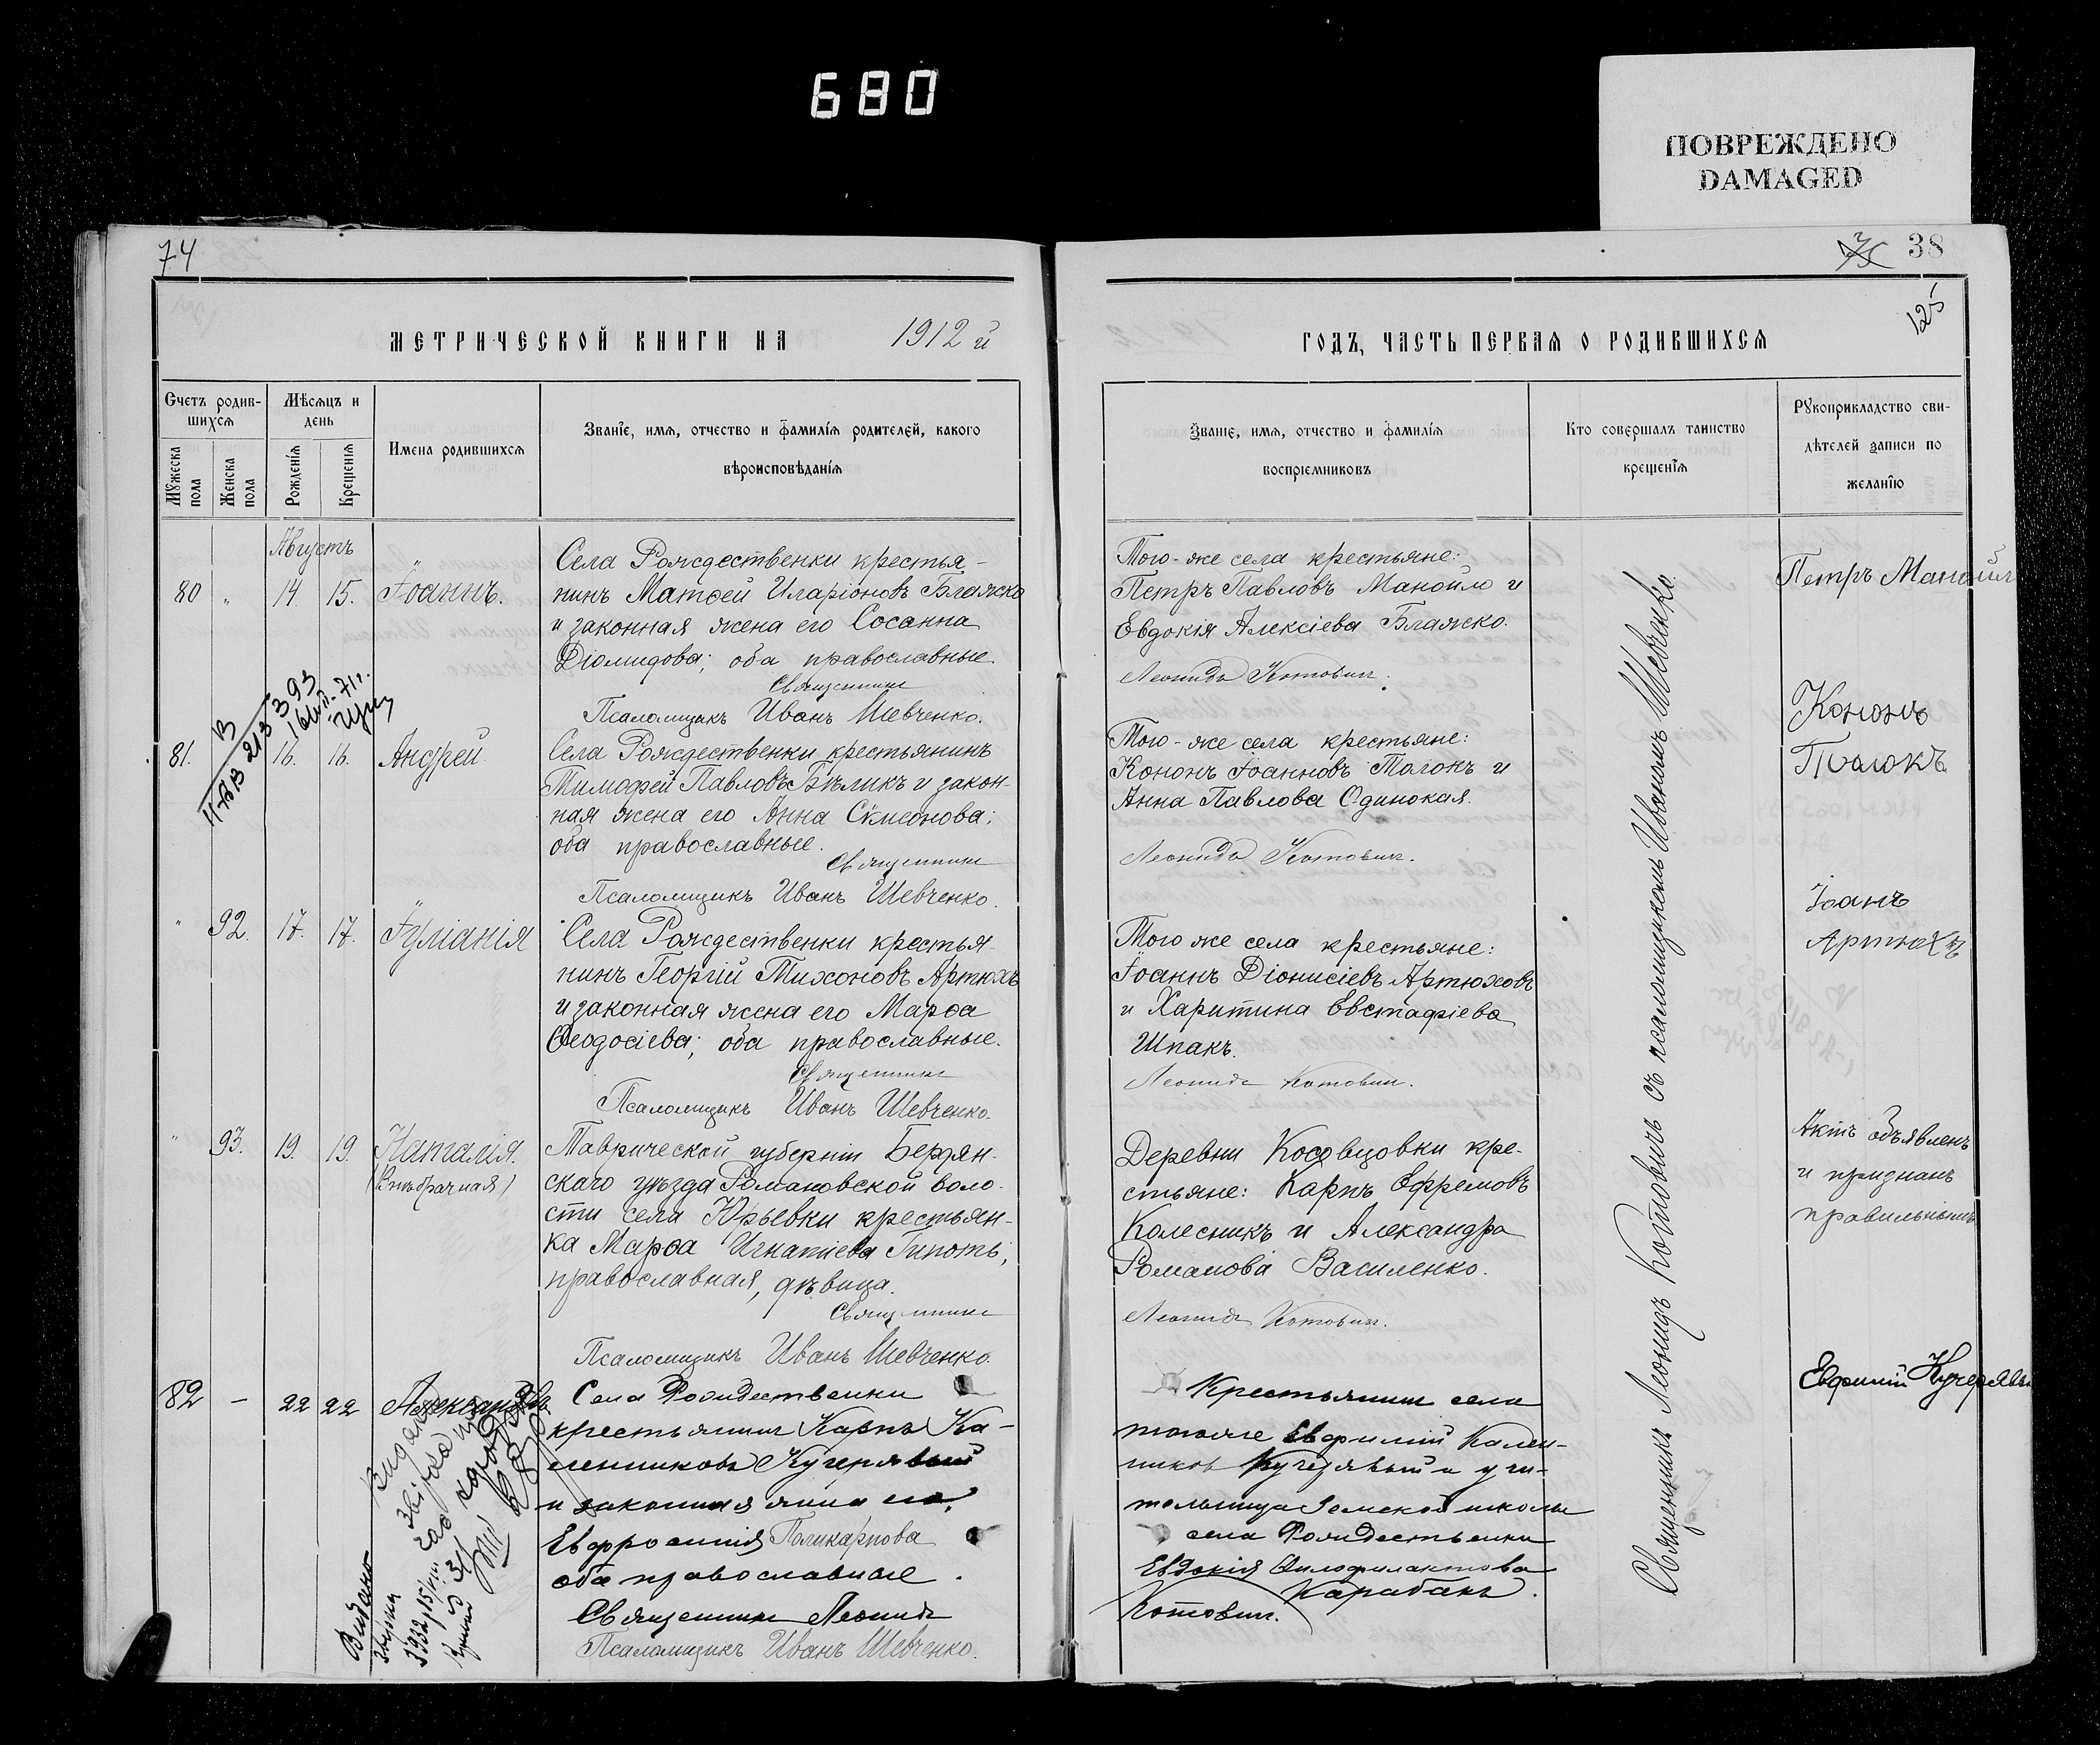 680
ПОВРЕЖДЕНО
DAMAGED
74
МЕТРИЧЕСКОЙ КНИГИ НА 1912 й
Счетъ родив-
шихся
Мѣсяцъ и
день
Мужеска
пола
Женска
пола
Рожденія
Крещенія
Имена родившихся
Званіе, имя, отчество и фамилія родителей, какого
вѣроисповѣданія
Августъ
80 " 14. 15. Іоаннъ.
Села Рождественки крестья-
нинъ Матѳей Иларіоновъ Блажко
и законная жена его Сосанна
Діомидова; оба православные.
Священникъ
Псаломщикъ Иванъ Шевченко.
81. 16. 16. Андрей.
Села Рождественки крестьянинъ
Тимофей Павловъ Бѣликъ и закон-
ная жена его Анна Сѵмеонова;
оба православные.
Священникъ
Псаломщикъ Иванъ Шевченко.
" 92. 17. 17. Іуліанія
Села Рождественки крестья-
нинъ Георгій Тихоновъ Артюхъ
и законная жена его Марѳа
Ѳеодосіева; оба православные.
Священникъ
Псаломщикъ Иванъ Шевченко.
" 93. 19. 19. Наталія.
(Внѣбрачная)
Таврической губерніи Бердян-
скаго уѣзда Романовской воло-
сти села Юрьевки крестьян-
ка Марѳа Игнатіева
православная, дѣвица.
Священникъ
Псаломщикъ Иванъ Шевченко.
82 – 22 22 Александръ
Села Рождественки
крестьянинъ Карпъ Ка-
линниковъ Кучерявый
и законная жена его,
Евфросинія Поликарпова
оба православные.
Священникъ Леонидъ
Псаломщикъ Иванъ Шевченко.
Видано
38
125
ГОДЪ, ЧАСТЬ ПЕРВАЯ О РОДИВШИХСЯ
Званіе, имя, отчество и фамилія
воспріемниковъ
Кто совершалъ таинство
крещенія
Рукоприкладство сви-
дѣтелей записи по
желанію
Того-же села крестьяне:
Петръ Павловъ Манойло и
Евдокія Алексіева Блажко.
Леонидъ Котовичъ.
Того-же села крестьяне:
Кононъ Іоанновъ и
Анна Павлова Одинокая.
Леонидъ Котовичъ.
Того же села крестьяне:
Іоаннъ Діонисіевъ Артюховъ
и Харитина Евстафіева
Шпакъ.
Леонидъ Котовичъ.
Деревни Косовцовки кре-
стьяне: Карпъ Ефремовъ
Колесникъ и Александра
Романова Василенко.
Леонидъ Котовичъ.
Крестьянинъ села
того же Евфимій Калин-
никовъ Кучерявый и учи-
тельница Земской школы
села Рождественки
Евдокія Филофилактова
Карабакъ.
Котовичъ.
Священникъ Леонидъ Котовичъ съ псаломщикомъ Иваномъ Шевченко.
Петръ Манойло
Кононъ
Іоанъ
Артюхъ
Актъ объявленъ
и признанъ
правильнымъ
Евфимій Кучерявый